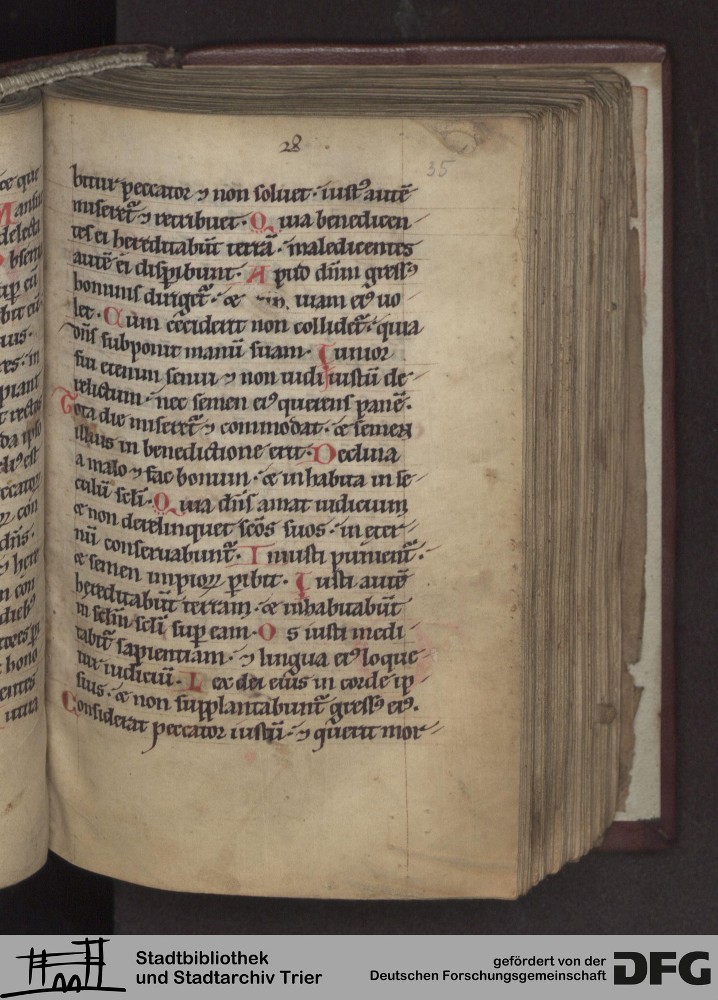 28
35
bitur peccator ⁊ non soluet · iustꝰ autē
miseret᷑ ⁊ retribuet · Quia benedicen
tes ei hereditabūt terrā · maledicentes
autē ei disꝑibunt · Apud dn̄m gressꝰ
hominis diriget᷑ · & uiam eiꝰ uo
let · Cum ceciderit non collidet᷑ · quia
dn̄s subponit manū suam · Iunior
fui etenim senui ⁊ non uidi iustū de
relictum · nec semen eiꝰ querens panē ·
Tota die miseret᷑ ⁊ commodat · & semen
illius in benedictione erit · Declina
a malo ⁊ fac bonum · & inhabita in se
culū scl̄i · Quia dn̄s amat iudicium
& non derelinquet sc̄os suos · in eter
nū conseruabunt᷑ · Iniusti punient᷑ ·
& semen impioꝝ ꝑibit · Iusti autē
hereditabūt terram · & inhabitabūt
in scl̄m scl̄i suꝑ eam · Os iusti medi
tabit᷑ sapientiam · ⁊ lingua eiꝰ loque
tur iudiciū · Lex dei eius in corde ip
sius · & non supplantabunt᷑ gressꝰ eiꝰ ·
Considerat peccator iustū · ⁊ querit mor
Stadtbibliothek
und Stadtarchiv Trier
gefördert von der
Deutschen Forschungsgemeinschaft
DFG